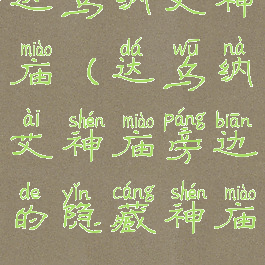 达乌纳艾神
miào dá wū nà
庙（达乌纳
ài shén miào páng biān
艾神庙旁边
de yǐn cáng shén miào
的隐藏神庙